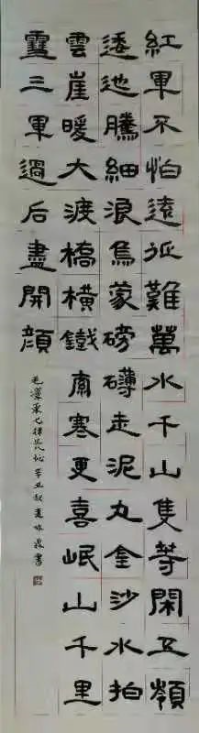 紅軍不怕遠征難萬水千山隻等閑五嶺
逶迤騰細浪烏蒙磅礴走泥丸金沙水拍
雲崖暖大渡橋橫鐵索寒更喜岷山千里
雪三軍過后盡開顏
毛澤東七律 辛丑 書